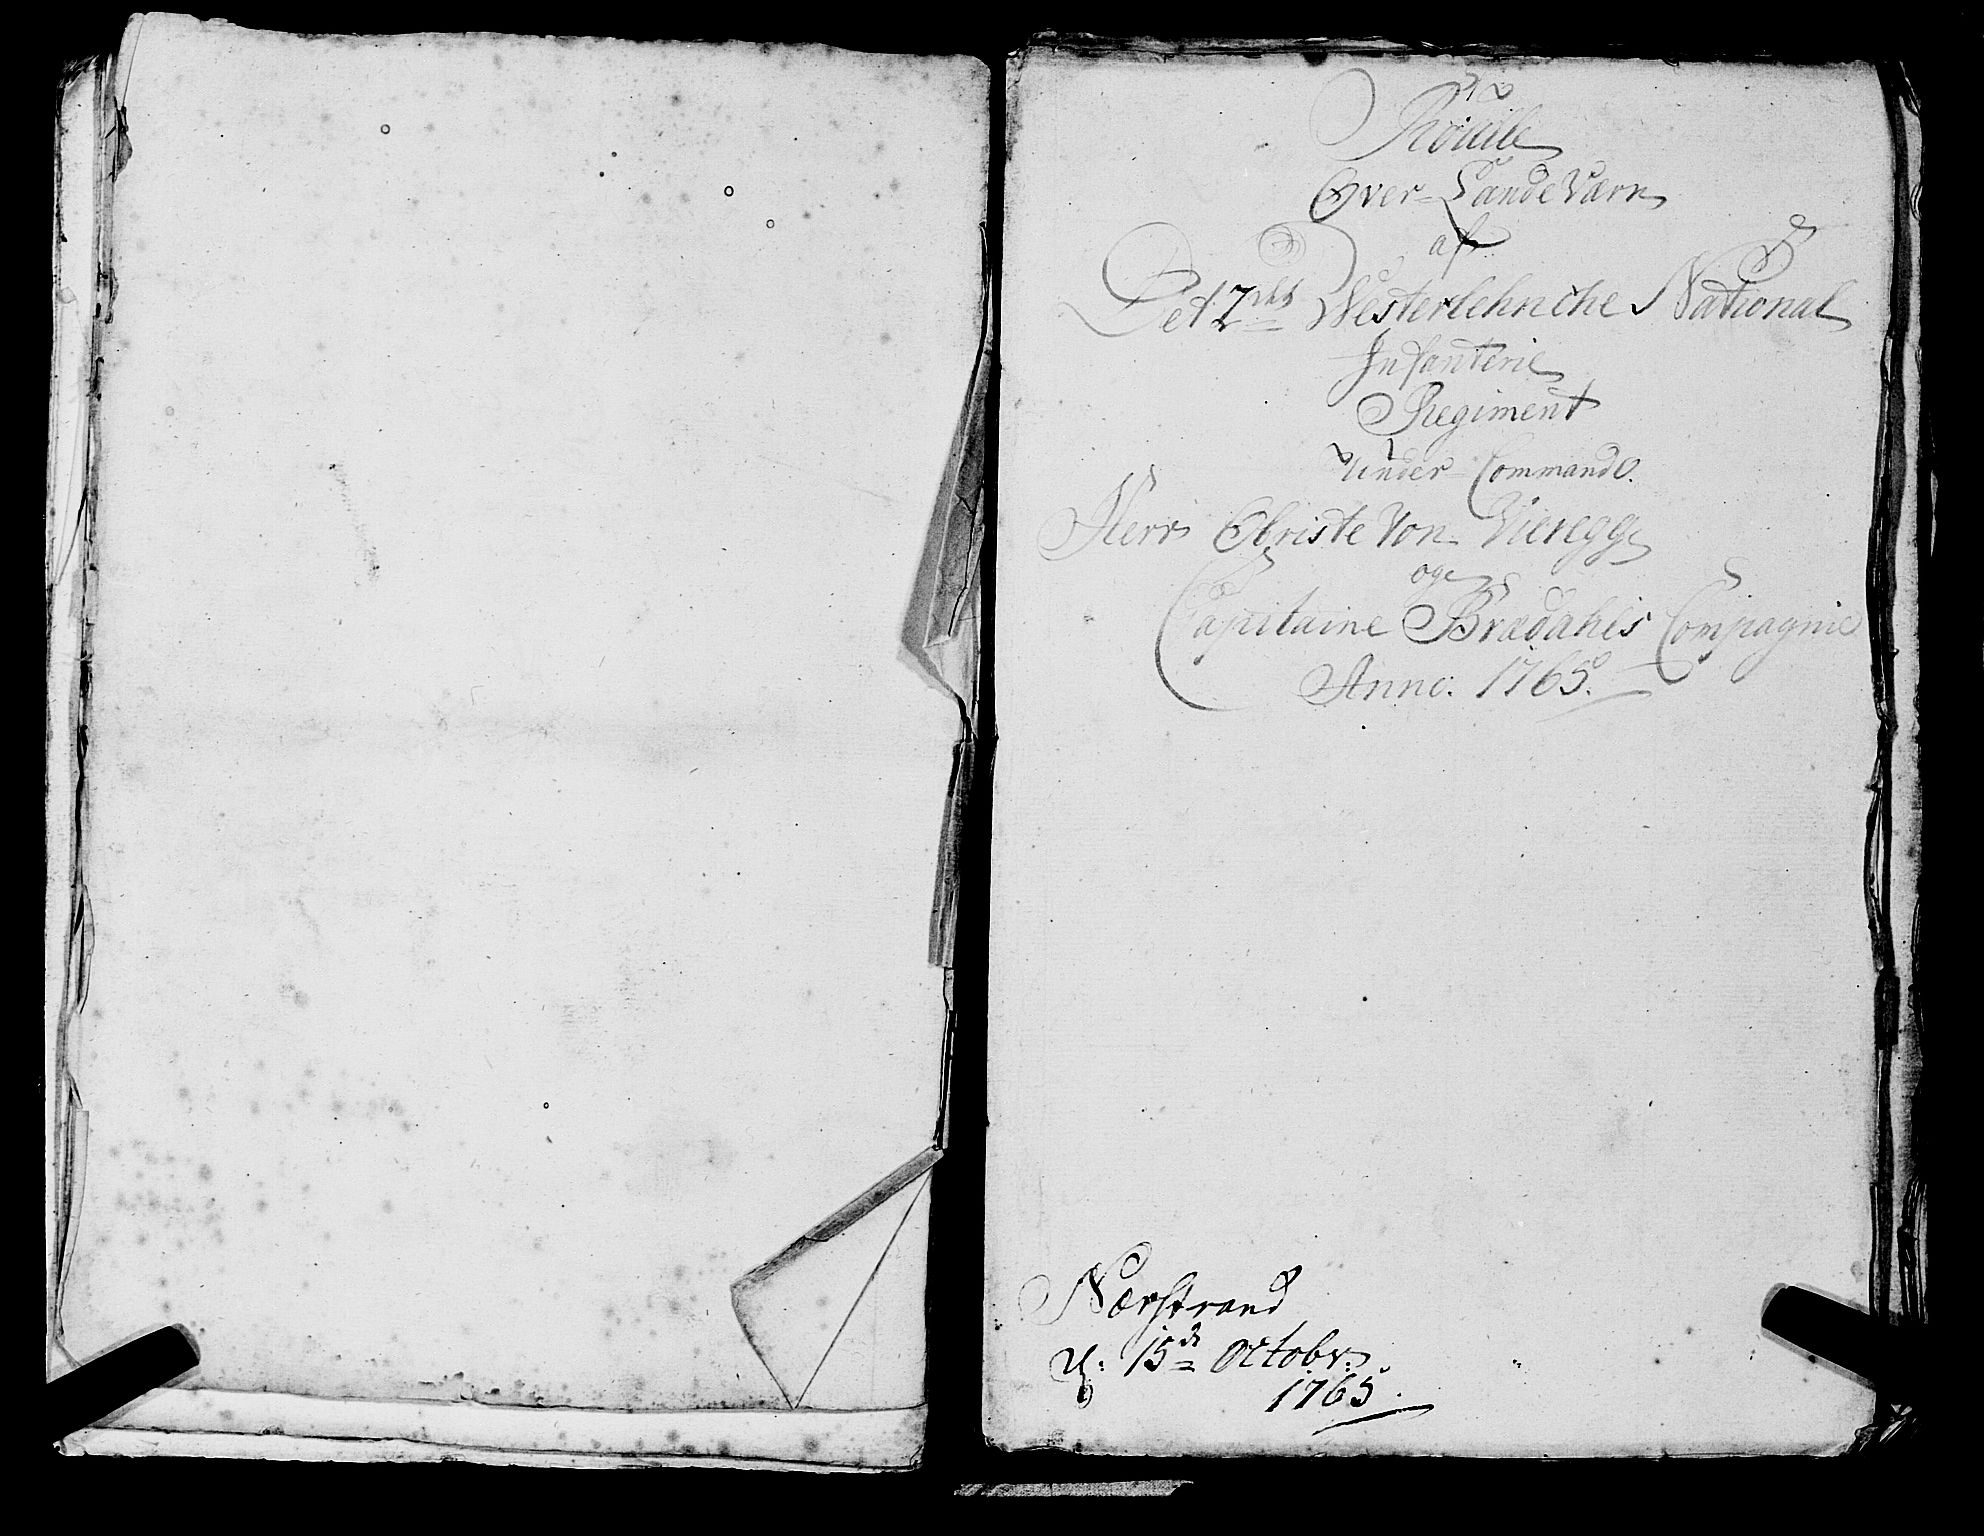 Roulle
Over-LandeVærn
af
Det 2det Westerlehnche National
Infanterie
Regiment
Under Commando.
Herr Obriste Von Vieregg
og
Capitaine Brædahls Compagnie
Anno. 1765.
Nærstrand
d: 15de Octobr:
1765.